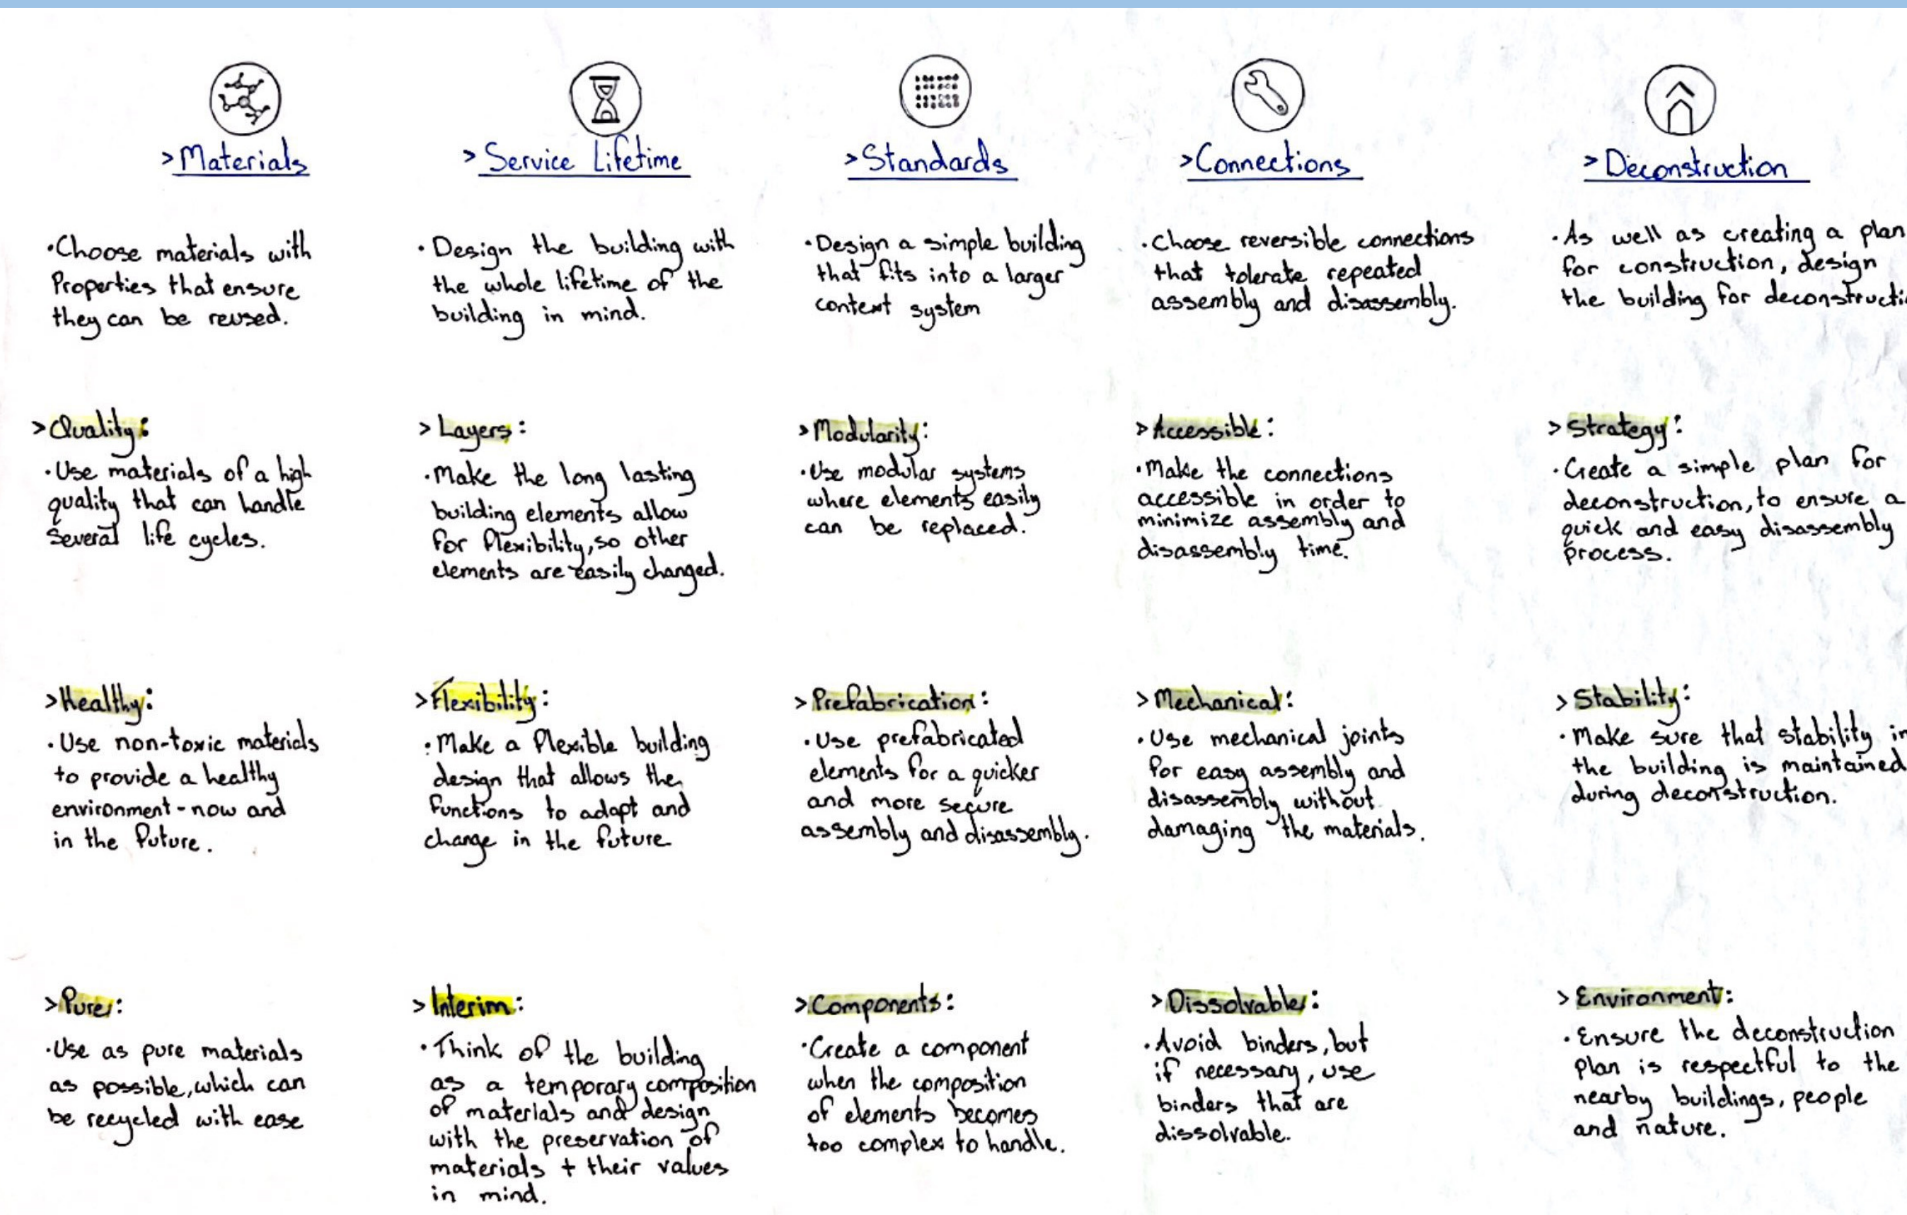 >Materials
•Choose materials with
Properties that ensure
they can be reused.
>Quality:
•Use materials of a high
quality that can handle
Several life cycles.
>Healthy:
•Use non-toxic materials
to provide a healthy
environment - now and
in the future.
>Pure:
•Use as pure materials
as possible, which can
be recycled with ease
>Service Lifetime
•Design the building with
the whole lifetime of the
building in mind.
>Layers:
•Make the long lasting
building elements allow
for flexibility, so other
elements are easily changed.
>Flexibility:
•Make a flexible building
design that allows the
functions to adapt and
change in the future
>Interim:
•Think of the building
as a temporary composition
of materials and design
with the preservation of
materials + their values
in mind.
>Standards
•Design a simple building
that fits into a larger
context system
>Modularity:
•Use modular systems
where elements easily
can be replaced.
>Prefabrication:
•Use prefabricated
elements for a quicker
and more secure
assembly and disassembly.
>Components:
•Create a component
when the composition
of elements becomes
too complex to handle.
>Connections
•Choose reversible connections
that tolerate repeated
assembly and disassembly.
>Accessible:
•Make the connections
accessible in order to
minimize assembly and
disassembly time.
>Mechanical:
•Use mechanical joints
for easy assembly and
disassembly without
damaging the materials.
>Dissolvable:
•Avoid binders, but
if necessary, use
binders that are
dissolvable.
>Deconstruction
•As well as creating a plan
for construction, design
the building for deconstructi
>Strategy:
•Create a simple plan for
deconstruction, to ensure a
quick and easy disassembly
process.
>Stability:
•Make sure that stability in
the building is maintained
during deconstruction.
>Environment:
•Ensure the deconstruction
plan is respectful to the
nearby buildings, people
and nature.